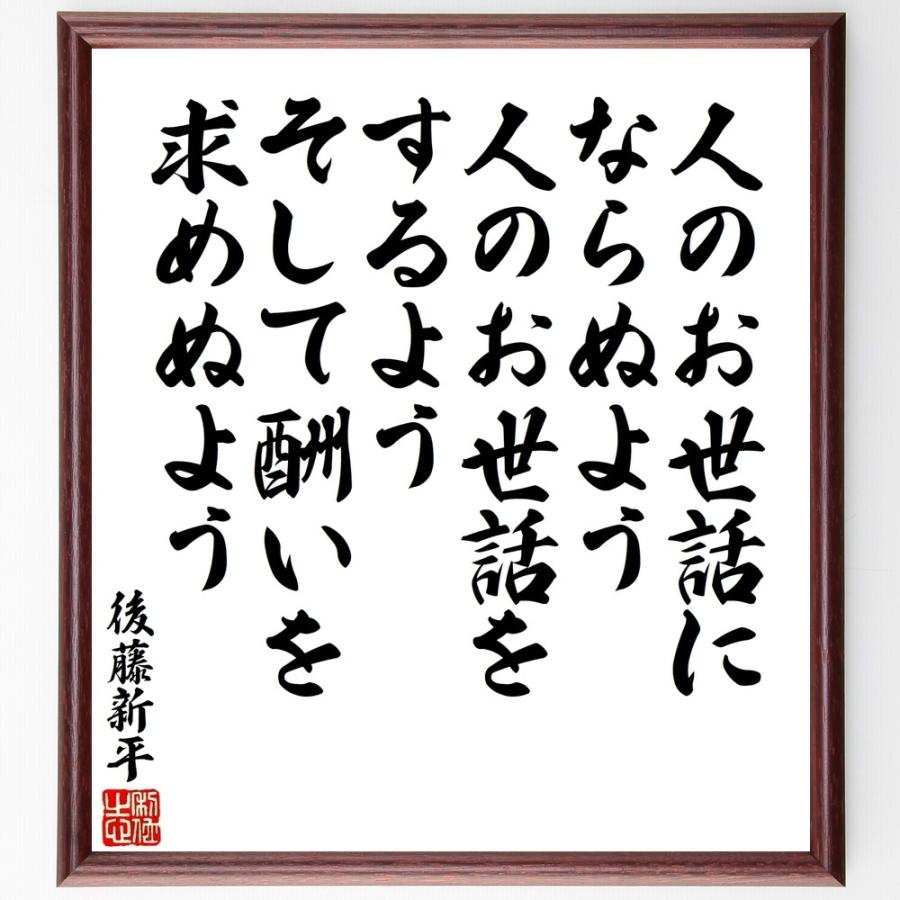 人のお世話に
ならぬよう
人のお世話を
するよう
そして酬いを
求めぬよう
後藤新平